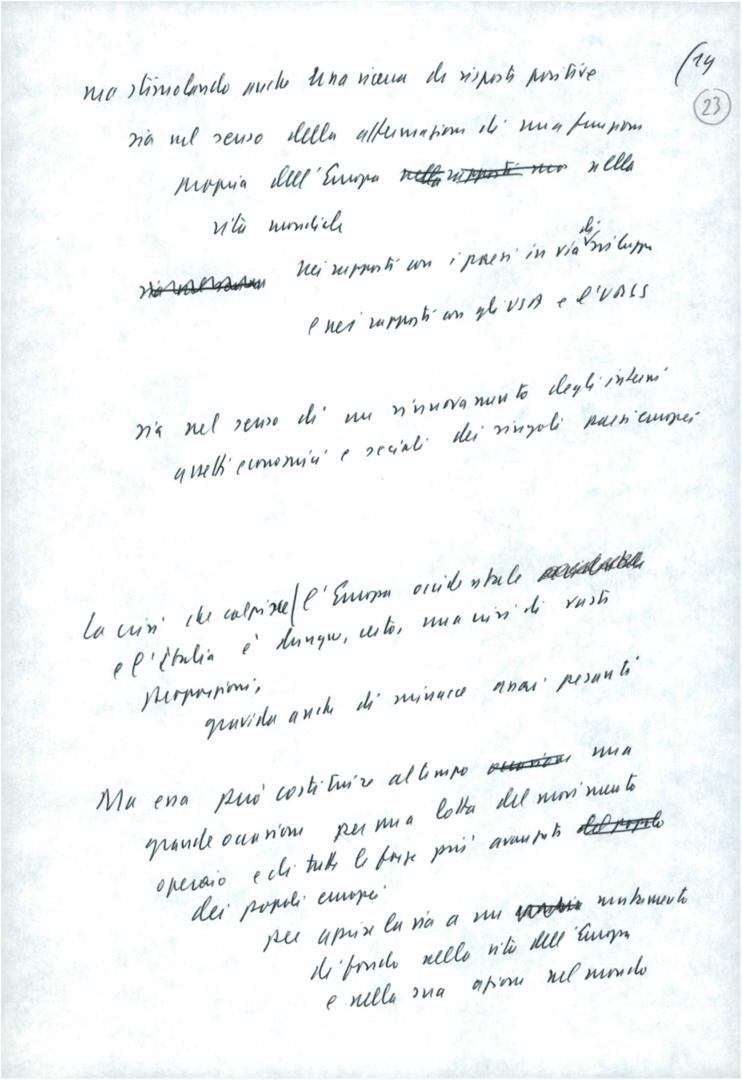 (14
23
ma stimolando anche una ricerca di risposte positive
sia nel senso della affermazione di una funzione
propria dell'Europa nella rapporti suo nella
vita mondiale
sia nel senso nei rapporti con i paesi in via di sviluppo
e nei rapporti con gli USA e l'URSS
sia nel senso di un rinnovamento degli interni
assetti economici e sociali dei singoli paesi europei
La crisi che colpisce l'Europa occidentale
e l'Italia è dunque, certo, una crisi di vaste
proporzioni,
gravida anche di minacce assai pesanti
Ma essa può costituire al tempo occasione una
grande occasione per una lotta del movimento
operaio e di tutte le forze più avanzate del popolo
dei popoli europei
per aprire la via a un mutamento
di fondo nella vita dell'Europa
e nella sua azione nel mondo